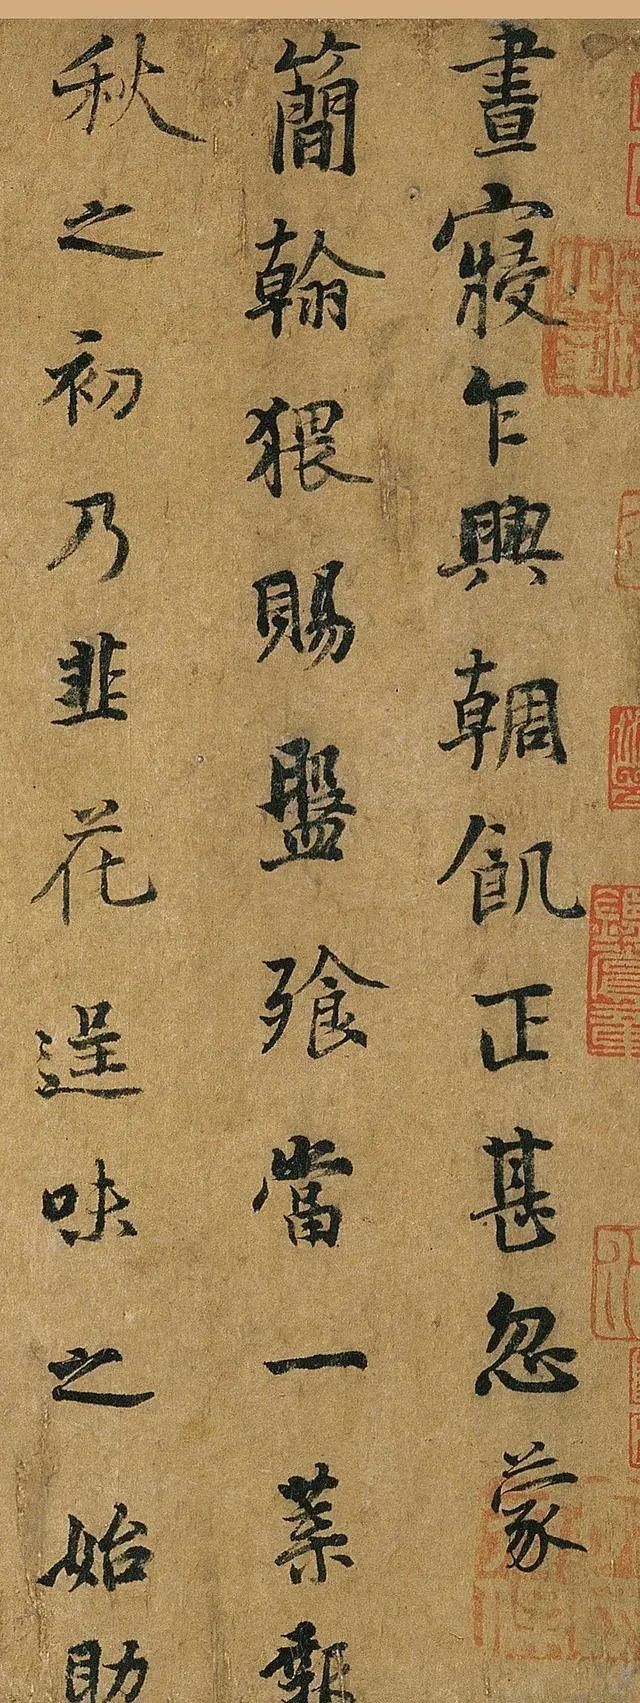 晝寢乍興輖飢正甚忽蒙
簡翰猥賜盤飧當一葉報
秋之初乃韭花逞味之始助